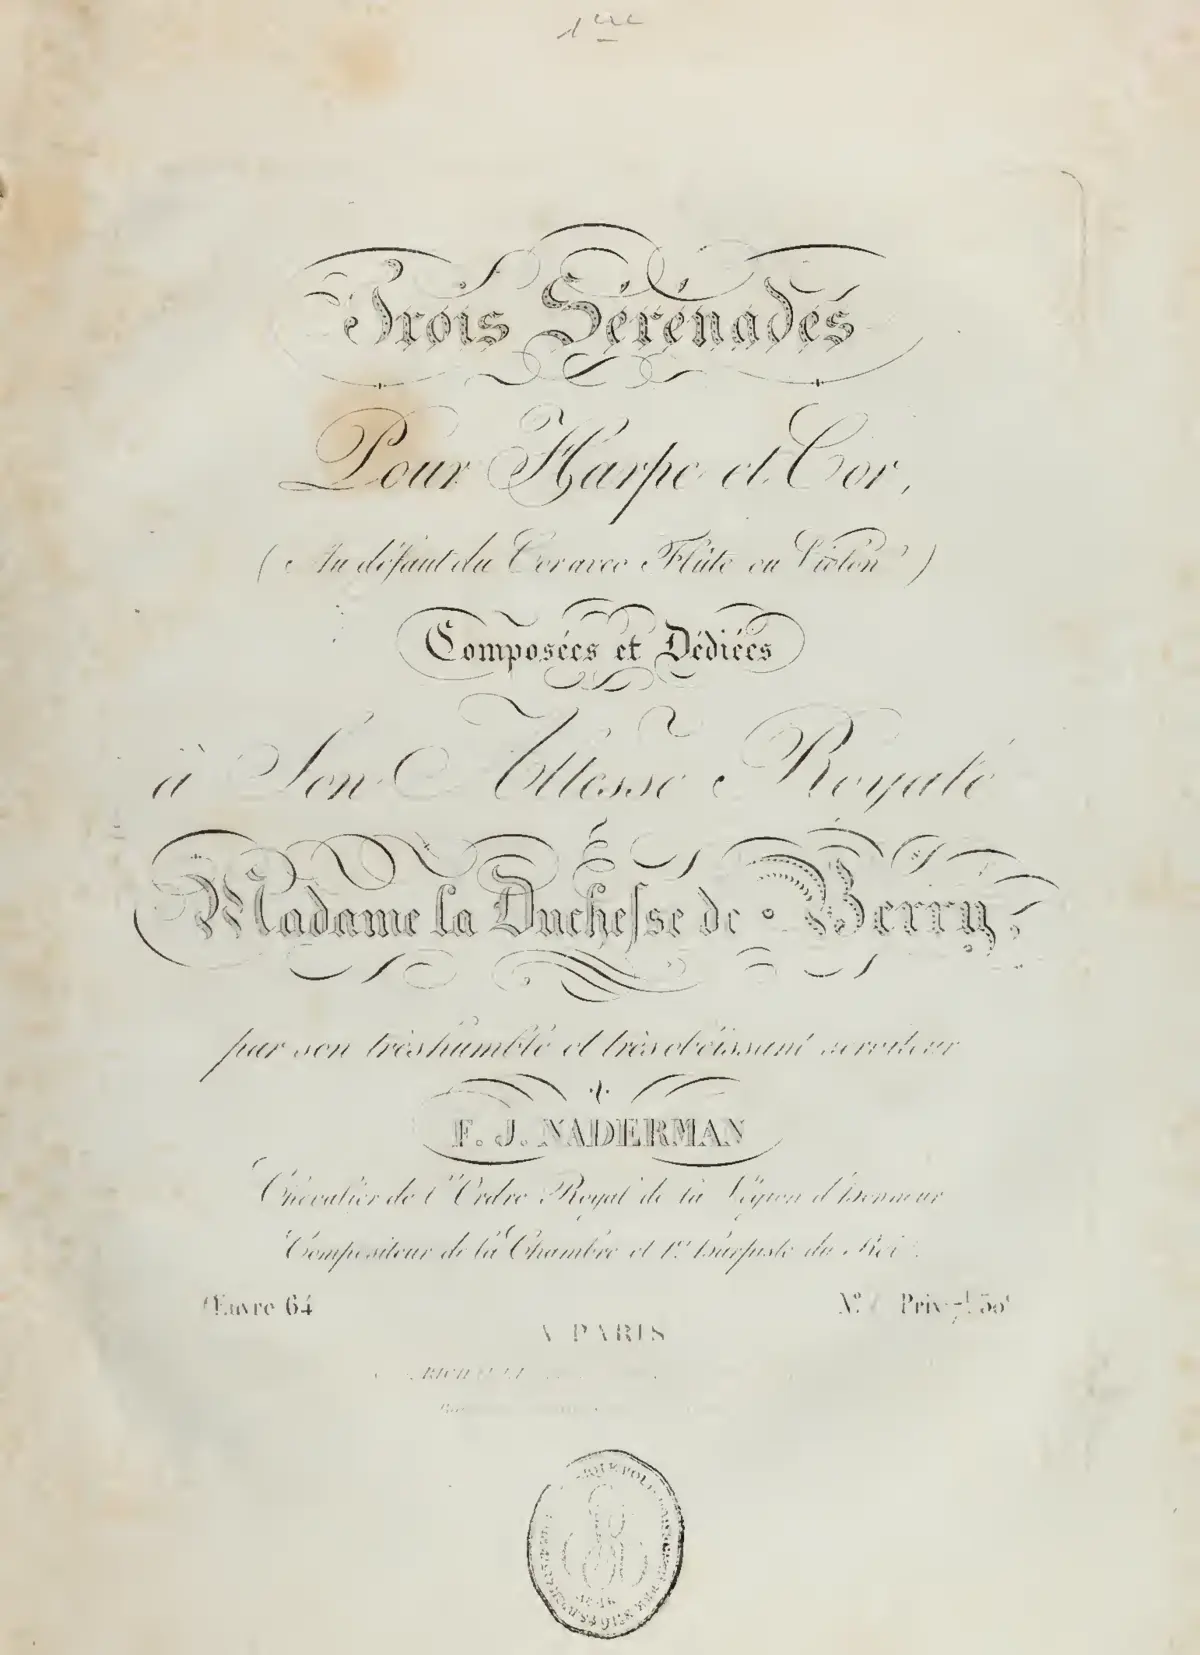 1ere
Trois Sérénades
Pour Harpe et Cor,
(Au défaut du Cor avec Flûte ou Violon)
Composées et Dédiées
à Son Altesse Royale
Madame la Duchesse de Berry,
par son très humble et très obéissant serviteur
F. J. NADERMAN
Chevalier de l'Ordre Royal de la Légion d'honneur
Compositeur de la Chambre et 1er harpiste du Roi.
Œuvre 64
No. Prix 7f 50c
A PARIS